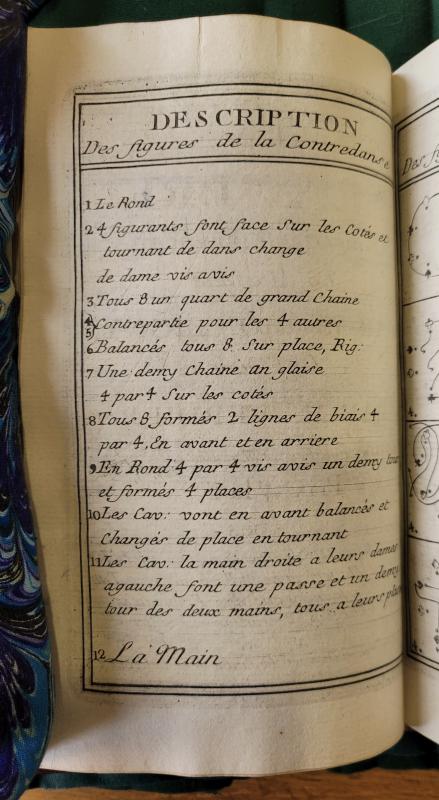 DESCRIPTION
Des figures de la Contredanse
1 Le Rond
2 4 figurants font face Sur les Cotés et
tournant de dans change
de dame vis avis
3 Tous 8 un quart de grand Chaine
4 5 Contrepartie pour les 4 autres
6 Balancés tous 8 Sur place, Rig:
7 Une demy Chaine an glaise
4 par 4 Sur les cotés
8 Tous 8 formés 2 lignes de biais 4
par 4, En avant et en arriere
9 En Rond 4 par 4 vis avis un demy tour
et formés 4 places
10 Les Cav: vont en avant balancés et
Changés de place en tournant
11 Les Cav: la main droite a leurs dames
agauche font une passe et un demy
tour des deux mains, tous a leurs places
12 La Main
Des
4.
4.